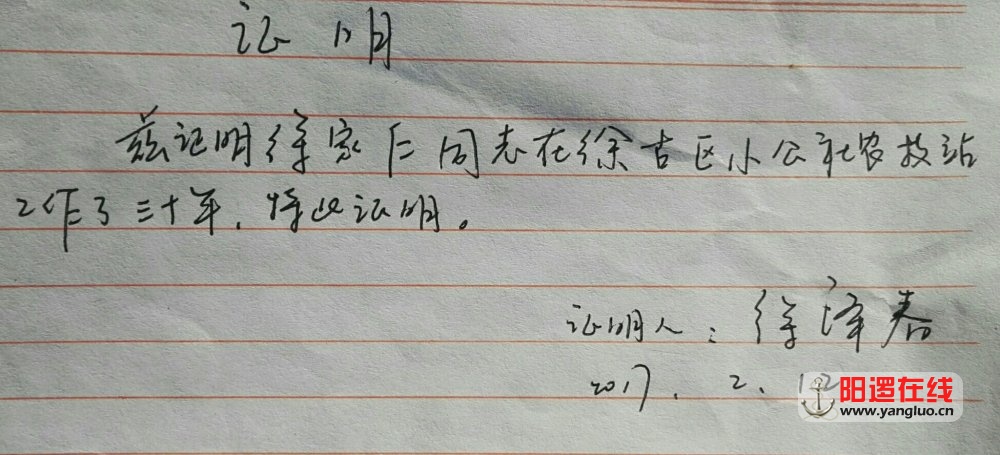 证明
兹证明徐家仁同志在徐古区小公社农技站
工作了三十年,特此证明。
证明人:徐泽春
2017.2.12
阳逻在线
www.yangluo.cn